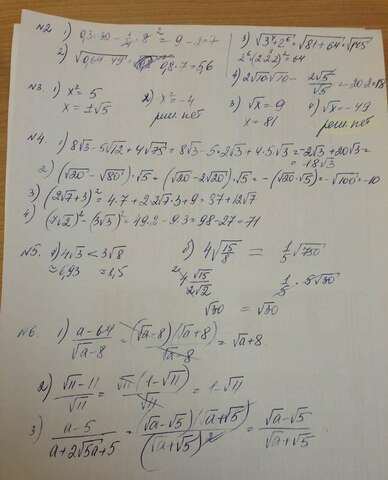 N2. 1) 0,3·30 - 1/4·8² = 9 - 2 = 7
2) √0,64·49 = 0,8·7 = 5,6
3) √3⁴·2⁶ = √81+64 = √145
2⁶(2·2·2)²=64
4) 2√10 √10 - 2√5/√5 = 20-2=18
N3. 1) x² = 5
x = ±√5
2) x² = -4
реш. нет
3) √x = 9
x = 81
4) √x = -49
реш. нет
N4. 1) 8√3 - 5√12 + 4√75 = 8√3 - 5·2√3 + 4·5√3 = -2√3 + 20√3 =
= 18√3
2) (√20 - √80)·√5 = (√20 - 2√20)·√5 = -(√20·√5) = -√100 = -10
3) (2√7+3)² = 4·7 + 2·2√7·3 + 9 = 37 + 12√7
4) (7√2)² - (3√3)² = 49·2 - 9·3 = 98 - 27 = 71
N5. а) 4√3 < 3√8
≈ 6,93 ≈ 8,5
б) 4√15/8 = 1/5 √750
4 √15/2√2 1/5·5√30
√30 = √30
N6. 1) a-64/√a-8 = (√a-8)(√a+8)/√a-8 = √a+8
2) √11-11/√11 = √11(1-√11)/√11 = 1-√11
3) a-5/a+2√5a+5 = (√a-√5)(√a+√5)/(√a+√5)² = √a-√5/√a+√5